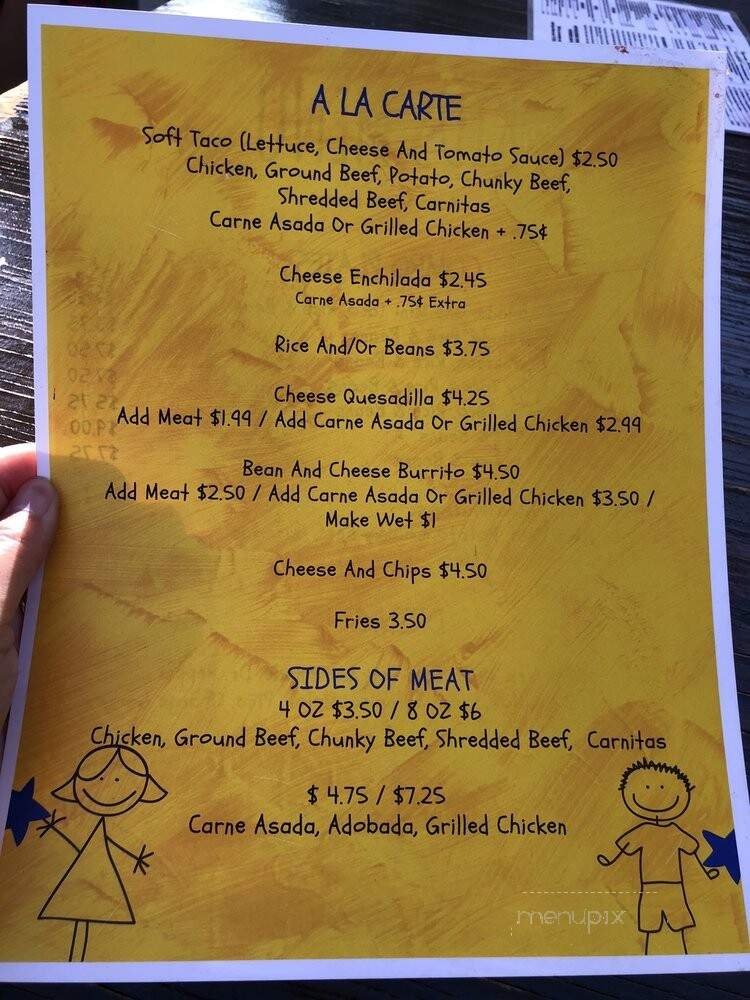 A LA CARTE
Soft Taco (Lettuce, Cheese And Tomato Sauce) $2.50
Chicken, Ground Beef, Potato, Chunky Beef,
Shredded Beef, Carnitas
Carne Asada Or Grilled Chicken + .75¢
Cheese Enchilada $2.45
Carne Asada + .75¢ Extra
Rice And/Or Beans $3.75
Cheese Quesadilla $4.25
Add Meat $1.99 / Add Carne Asada Or Grilled Chicken $2.99
Bean And Cheese Burrito $4.50
Add Meat $2.50 / Add Carne Asada Or Grilled Chicken $3.50 /
Make Wet $1
Cheese And Chips $4.50
Fries 3.50
SIDES OF MEAT
4 OZ $3.50 / 8 OZ $6
Chicken, Ground Beef, Chunky Beef, Shredded Beef, Carnitas
$ 4.75 / $7.25
Carne Asada, Adobada, Grilled Chicken
menupix